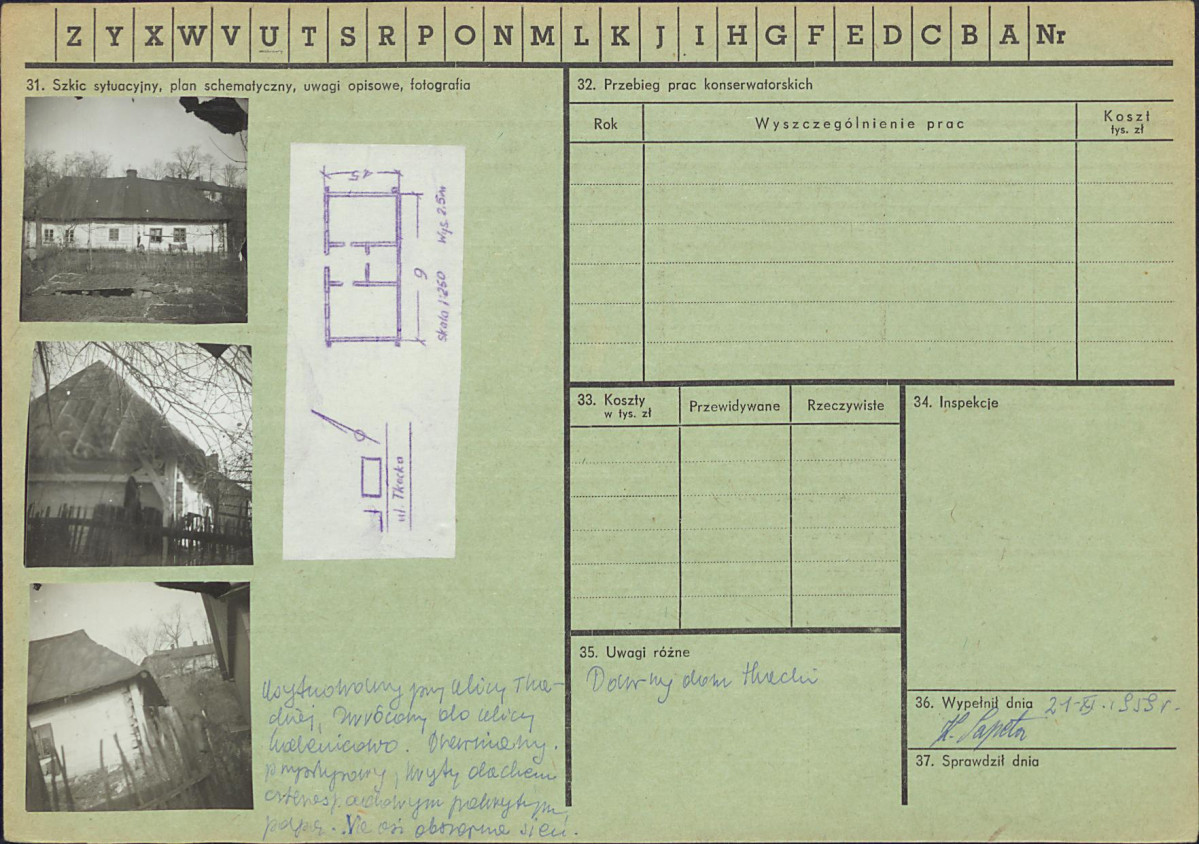 Z Y X W V U T S R P O N M L K J I H G F E D C B A Nr
31. Szkic sytuacyjny, plan schematyczny, uwagi opisowe, fotografia
45
9
Skala 1:260 Wys. 2.5m
ul. Tkacka
Usytuowany przy ulicy Tka-
ckiej, zwrócony do ulicy
kalenicowo. Drewniany,
przysłupowy, kryty dachem
czterospadowym pokrytym
papą. Na osi obszerna sień.
32. Przebieg prac konserwatorskich
Rok Wyszczególnienie prac Koszt
tys. zł
33. Koszty
w tys. zł
Przewidywane Rzeczywiste
34. Inspekcje
35. Uwagi różne
Dawny dom tkacki
36. Wypełnił dnia 21-XI-1959 r.
37. Sprawdził dnia